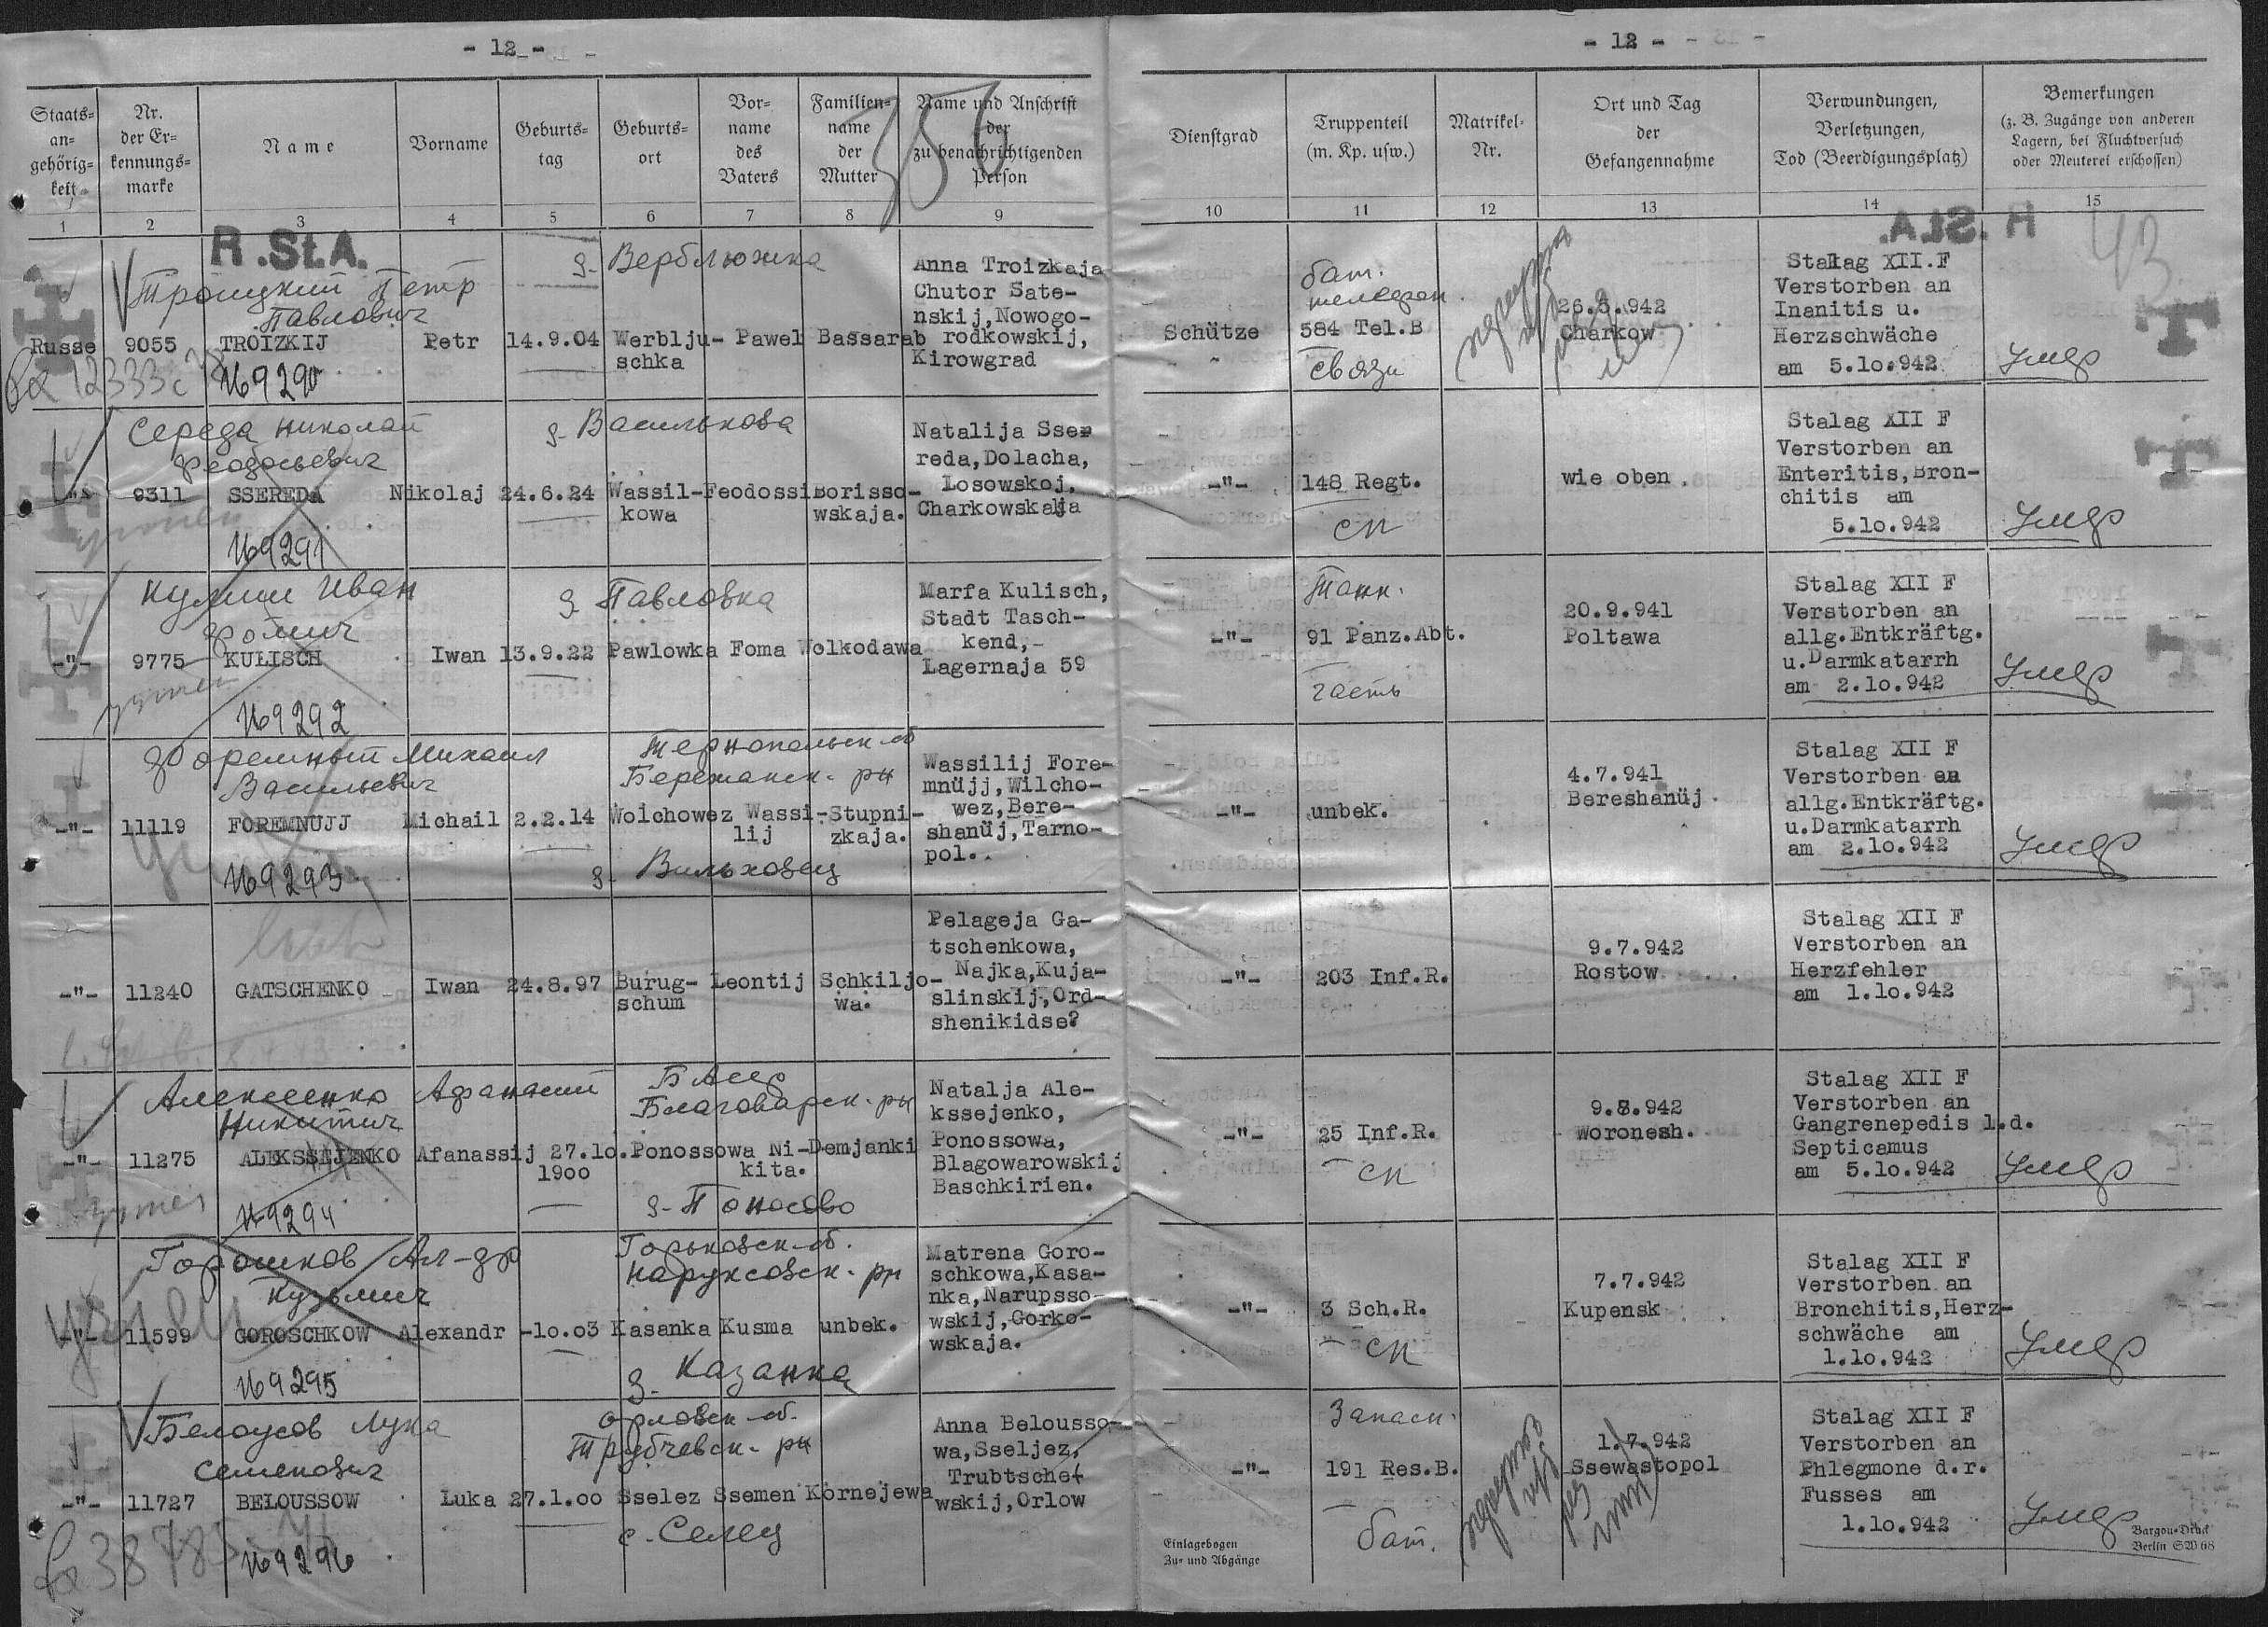 - 12 -
- 12 -
Staats-
an-
gehörig-
keit
Nr.
der Er-
kennungs-
marke
Name
Vorname
Geburts-
tag
Geburts-
ort
Vor-
name
des
Vaters
Familien-
name
der
Mutter
Name und Anschrift
der
zu benachrichtigenden
Person
Dienstgrad
Truppenteil
(m. Kp. usw.)
Matrikel-
Nr.
Ort und Tag
der
Gefangennahme
Verwundungen,
Verletzungen,
Tod (Beerdigungsplatz)
Bemerkungen
(z. B. Zugänge von anderen
Lagern, bei Fluchtversuch
oder Meuterei erschossen)
1 2 3 4 5 6 7 8 9 10 11 12 13 14 15
R.St.A.
43
Троицкий Петр
Павлович
д. Верблюжка
Russe 9055 TROIZKIJ Petr 14.9.04 Werblju- Pawel Bassarab
schka
№9290
Anna Troizkaja
Chutor Sate-
nskij,Nowogo-
rodkowskij,
Kirowgrad
Schütze
бат.
телефон.
584 Tel.B
связи
26.5.942
Charkow
Stalag XII.F
Verstorben an
Inanitis u.
Herzschwäche
am 5.10.942
Умер
Середа Николай
Феодосьевич
д. Василькова
-"- 9311 SSEREDA Nikolaj 24.6.24 Wassil- Feodossi Borisso-
kowa wskaja.
№9291
Natalija Sse-
reda,Dolacha,
Losowskoj,
Charkowskaja
-"-
148 Regt.
сп
wie oben
Stalag XII F
Verstorben an
Enteritis,Bron-
chitis am
5.10.942
Умер
Кулиш Иван
Фомич
д. Павловка
-"- 9775 KULISCH Iwan 13.9.22 Pawlowka Foma Wolkodawa
№9292
Marfa Kulisch,
Stadt Tasch-
kend,-
Lagernaja 59
-"-
Танк.
91 Panz.Abt.
часть
20.9.941
Poltawa
Stalag XII F
Verstorben an
allg.Entkräftg.
u.Darmkatarrh
am 2.10.942
Умер
Форемный Михаил
Васильевич
Тернопольск. об
Бережанск. рн
-"- 11119 FOREMNUJJ Michail 2.2.14 Wolchowez Wassi- Stupni-
lij zkaja.
д. Вильховец
№9293
Wassilij Fore-
mnüjj,Wilcho-
wez,Bere-
shanüj,Tarno-
pol.
-"-
unbek.
4.7.941
Bereshanüj.
Stalag XII F
Verstorben an
allg.Entkräftg.
u.Darmkatarrh
am 2.10.942
Умер
-"- 11240 GATSCHENKO Iwan 24.8.97 Burug- Leontij Schkiljo-
schum wa.
Pelageja Ga-
tschenkowa,
Najka,Kuja-
slinskij,Ord-
shenikidse?
-"-
203 Inf.R.
9.7.942
Rostow
Stalag XII F
Verstorben an
Herzfehler
am 1.10.942
Алексеенко Афанасий
Никитич
БАССР
Благоварск. рн
-"- 11275 ALEKSSEJENKO Afanassij 27.10. Ponossowa Ni- Demjanki
1900 kita.
д. Поносово
№9294
Natalja Ale-
kssejenko,
Ponossowa,
Blagowarowskij
Baschkirien.
-"-
25 Inf.R.
сп
9.8.942
Woronesh.
Stalag XII F
Verstorben an
Gangrenepedis l.d.
Septicamus
am 5.10.942
Умер
Горошков Ал-др
Кузьмич
Горьковск. об.
Наруксовск. рн
-"- 11599 GOROSCHKOW Alexandr -10.03 Kasanka Kusma unbek.
д. Казанка
№9295
Matrena Goro-
schkowa,Kasa-
nka,Narupsso-
wskij,Gorko-
wskaja.
-"-
3 Sch.R.
сп
7.7.942
Kupensk
Stalag XII F
Verstorben an
Bronchitis,Herz-
schwäche am
1.10.942
Умер
Белоусов Лука
Семенович
Орловск. об.
Трубчевск. рн
-"- 11727 BELOUSSOW Luka 27.1.00 Sselez Ssemen Kornejewa
с. Селец
№9296
Anna Belousso-
wa,Sseljez,
Trubtschef
wskij,Orlow
-"-
Запасн.
191 Res.B.
бат.
1.7.942
Ssewastopol
Stalag XII F
Verstorben an
Phlegmone d.r.
Fusses am
1.10.942
Умер
Einlagebogen
Zu- und Abgänge
Bargou-Druck
Berlin SW 68